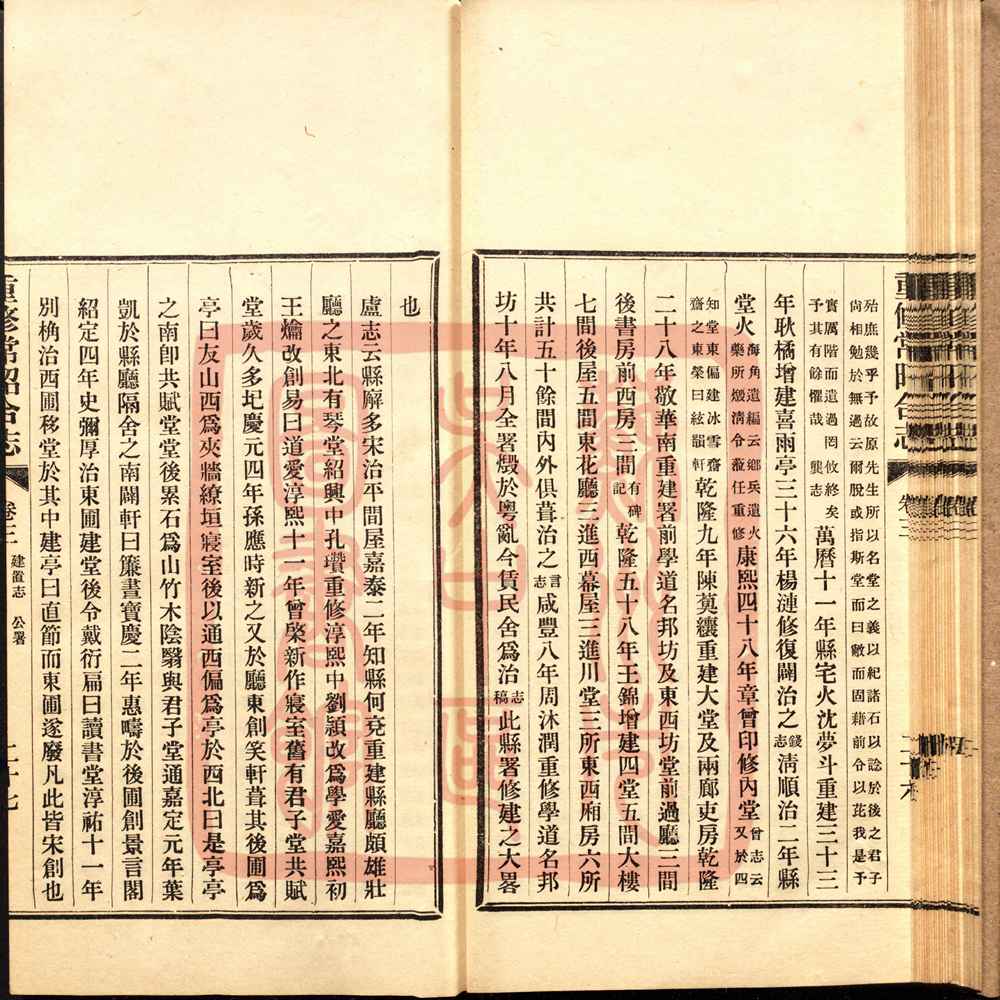 殆庶幾乎予故原先生所以名堂之義以紀諸石以諗於後之君子
尙相勉於無過云爾脫或指斯堂而曰敝而固藉前令以茈我是予
實厲階而遺過罔攸終矣
予其有餘懼哉 龔志
萬曆十一年縣宅火沈夢斗重建三十三
年耿橘增建喜雨亭三十六年楊漣修復闢治之
錢志
淸順治二年縣
堂火
海角遺編云鄉兵遺火
藥所燬淸令蒞任重修
康熙四十八年章曾印修內堂
曾志云
又於四
知堂東偏建冰雪齋
齋之東榮曰絃韻軒
乾隆九年陳奠纕重建大堂及兩廊吏房乾隆
二十八年敬華南重建署前學道名邦坊及東西坊堂前過廳三間
後書房前西房三間
有碑
記
乾隆五十八年王錦增建四堂五間大樓
七間後屋五間東花廳三進西幕屋三進川堂三所東西廂房六所
共計五十餘間內外俱葺治之
言
志
咸豐八年周沐潤重修學道名邦
坊十年八月全署燬於粵亂今賃民舍爲治
志
稿
此縣署修建之大畧
也
盧志云縣廨多宋治平間屋嘉泰二年知縣何兗重建縣廳頗雄壯
廳之東北有琴堂紹興中孔瓚重修淳熙中劉穎改爲學愛嘉熙初
王爚改創易曰道愛淳熙十一年曾棨新作寢室舊有君子堂共賦
堂歲久多圮慶元四年孫應時新之又於廳東創笑軒葺其後圃爲
亭曰友山西爲夾牆繚垣寢室後以通西偏爲亭於西北曰是亭亭
之南卽共賦堂堂後累石爲山竹木陰翳與君子堂通嘉定元年葉
凱於縣廳隔舍之南闢軒曰簾晝寶慶二年惠疇於後圃創景言閣
紹定四年史彌厚治東圃建堂後令戴衍扁曰讀書堂淳祐十一年
別桷治西圃移堂於其中建亭曰直節而東圃遂廢凡此皆宋創也
重修常昭合志
卷三
建置志 公署
二十七